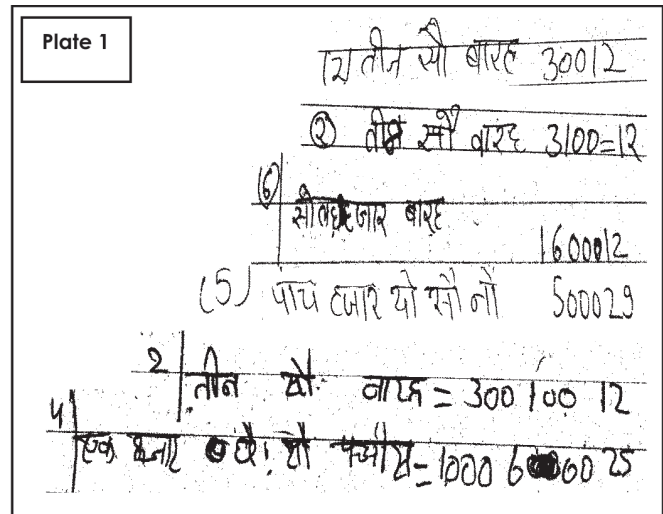 Plate 1
(2) तीन सौ बारह 30012
(२) तीन सौ बारह 3100=12
(6) सोलह हजार बारह
1600012
(5) पांच हजार यो सौ नौ 500029
2 तीन सौ बारह = 300 100 12
4 एक हजार छै सौ पच्चीस = 1000 6 00 25